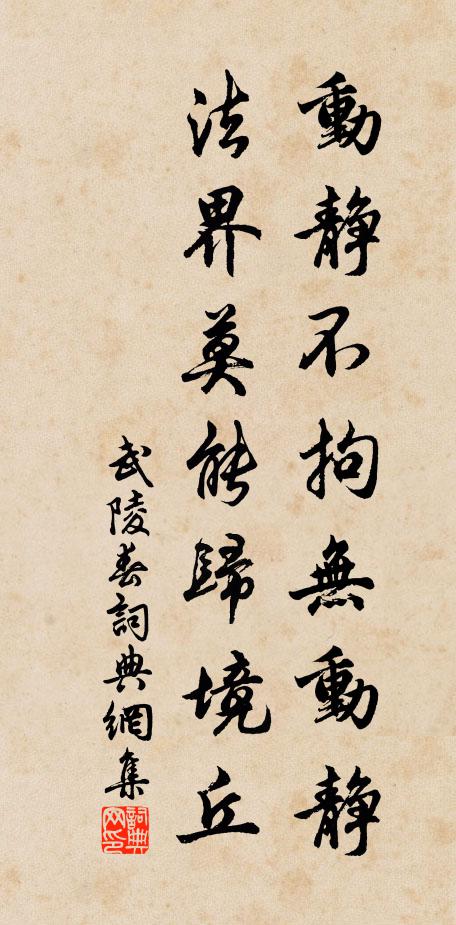 動靜不拘無動靜
法界莫能歸境丘
武陵春詞典網集
詞典網印